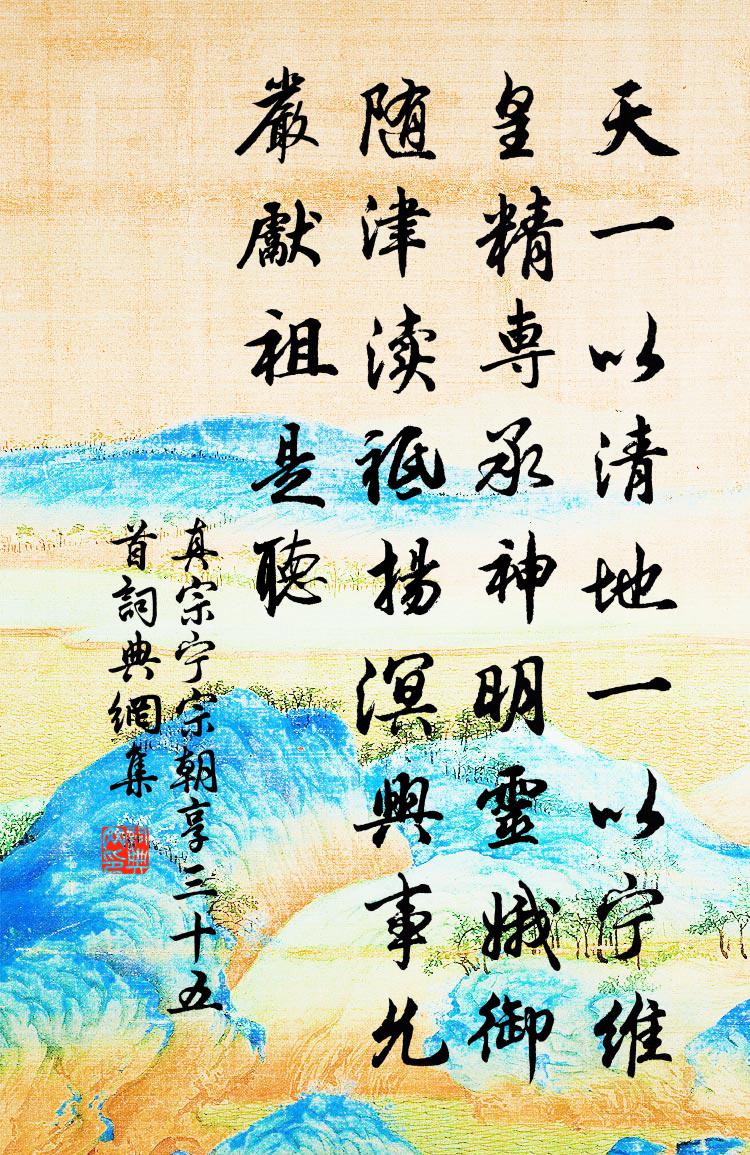 天一以清地一以宁維
皇精専承神明靈娥御
随津渎祗揚溟興事允
嚴獻祖是聽
真宗宁宗朝享三十五
首詞典網集